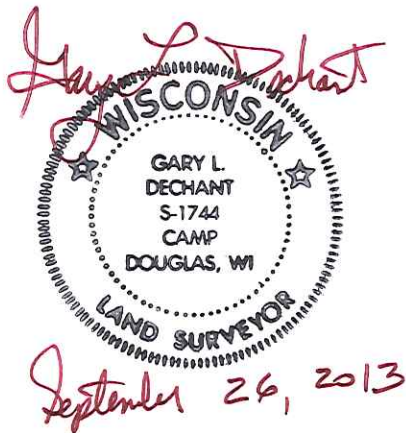 Gary L Dechant
WISCONSIN
GARY L.
DECHANT
S-1744
CAMP
DOUGLAS, WI
LAND SURVEYOR
September 26, 2013